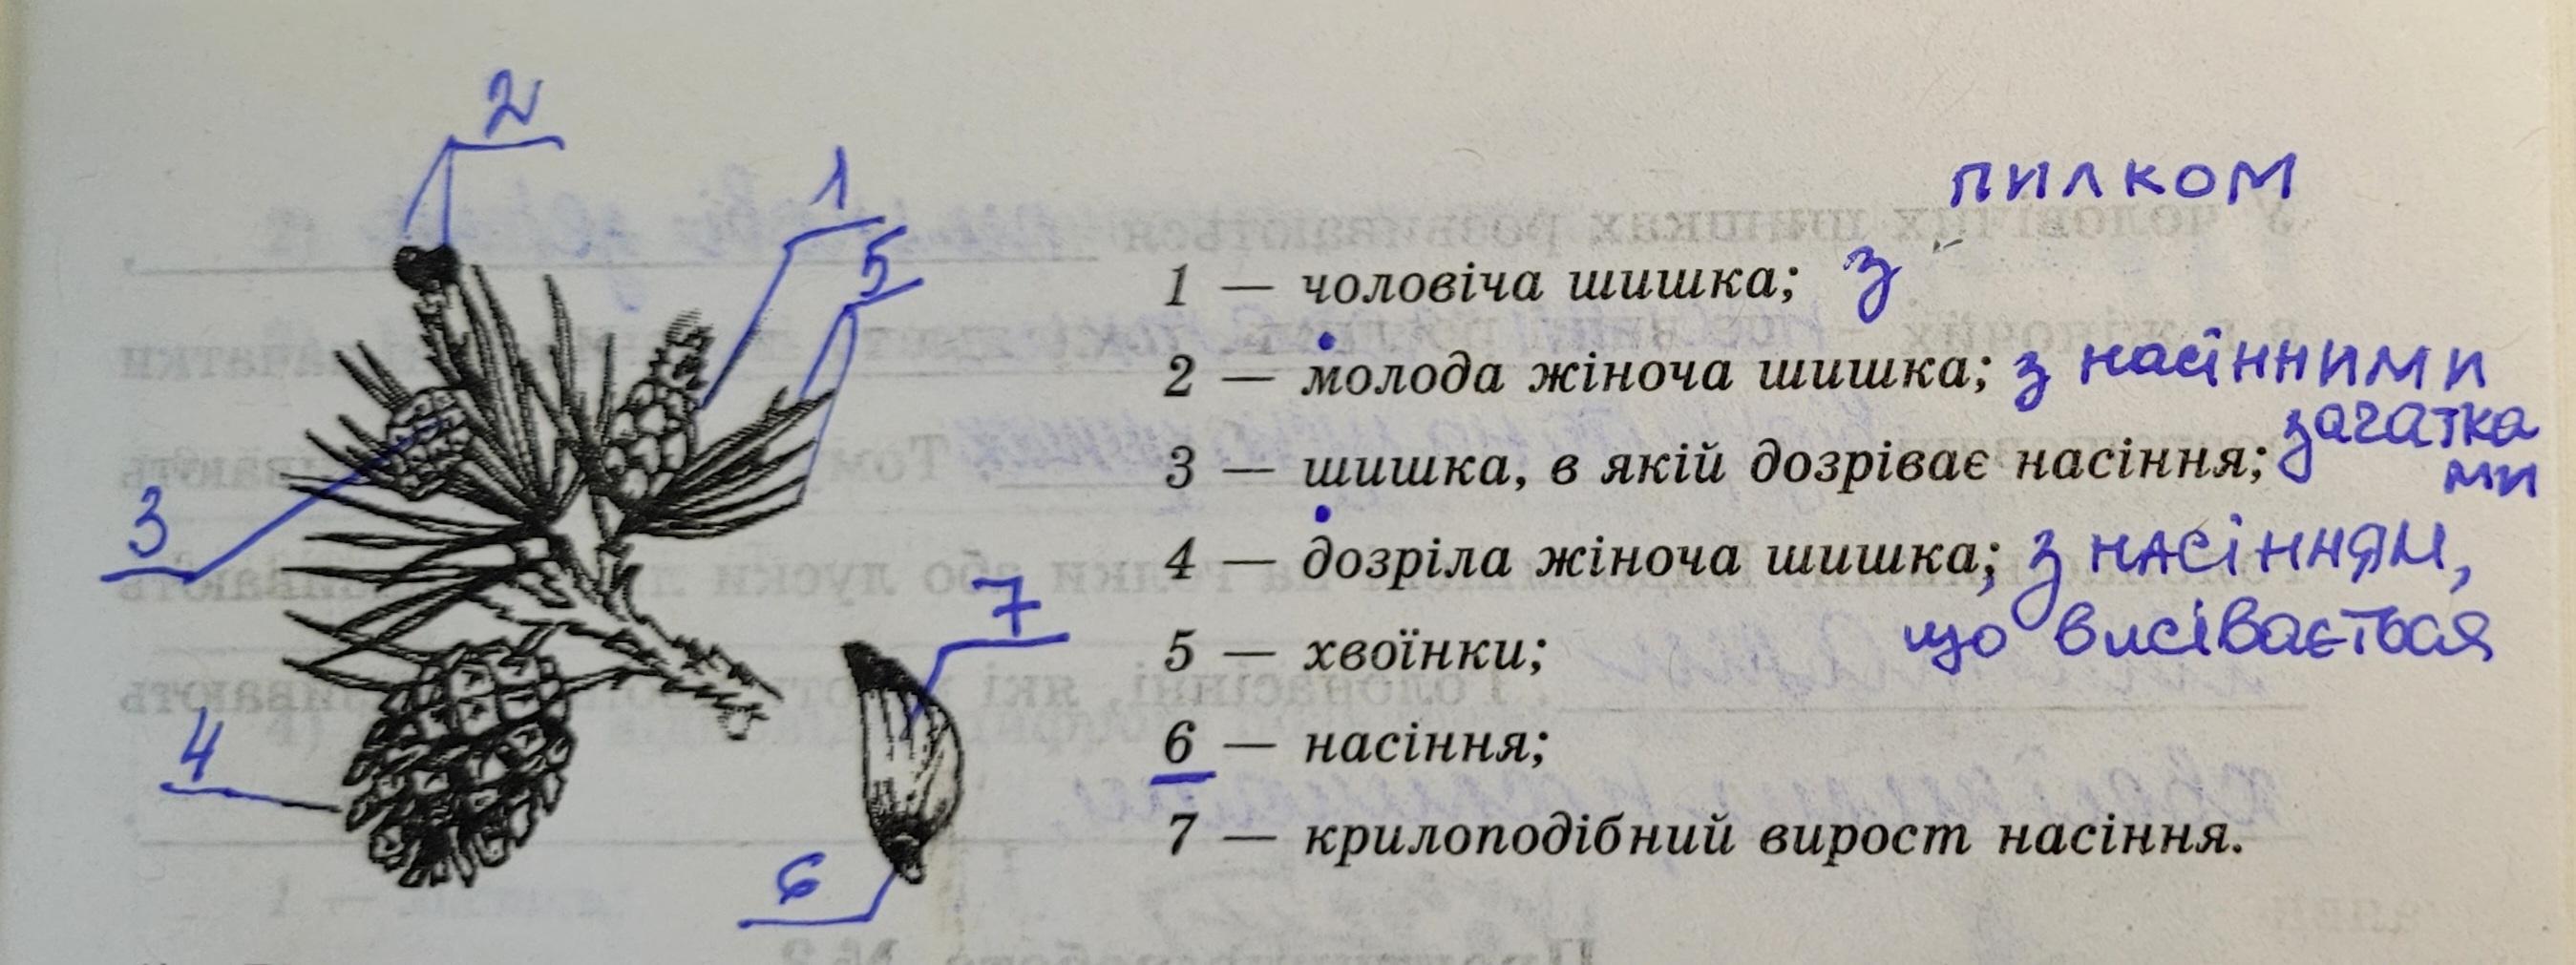 2
1
5
3
7
4
6
пилком
1 — чоловіча шишка; з
2 — молода жіноча шишка; з насінними
зачатка
3 — шишка, в якій дозріває насіння;
ми
4 — дозріла жіноча шишка; з насінням,
що висівається
5 — хвоїнки;
6 — насіння;
7 — крилоподібний вирост насіння.